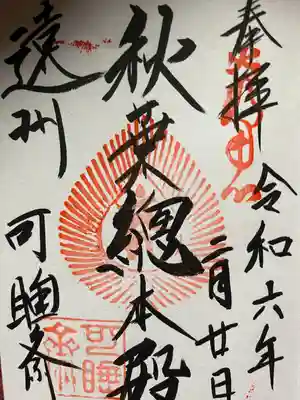 奉拝
令和六年
二月廿日
秋葉總本殿
遠州
可睡斎